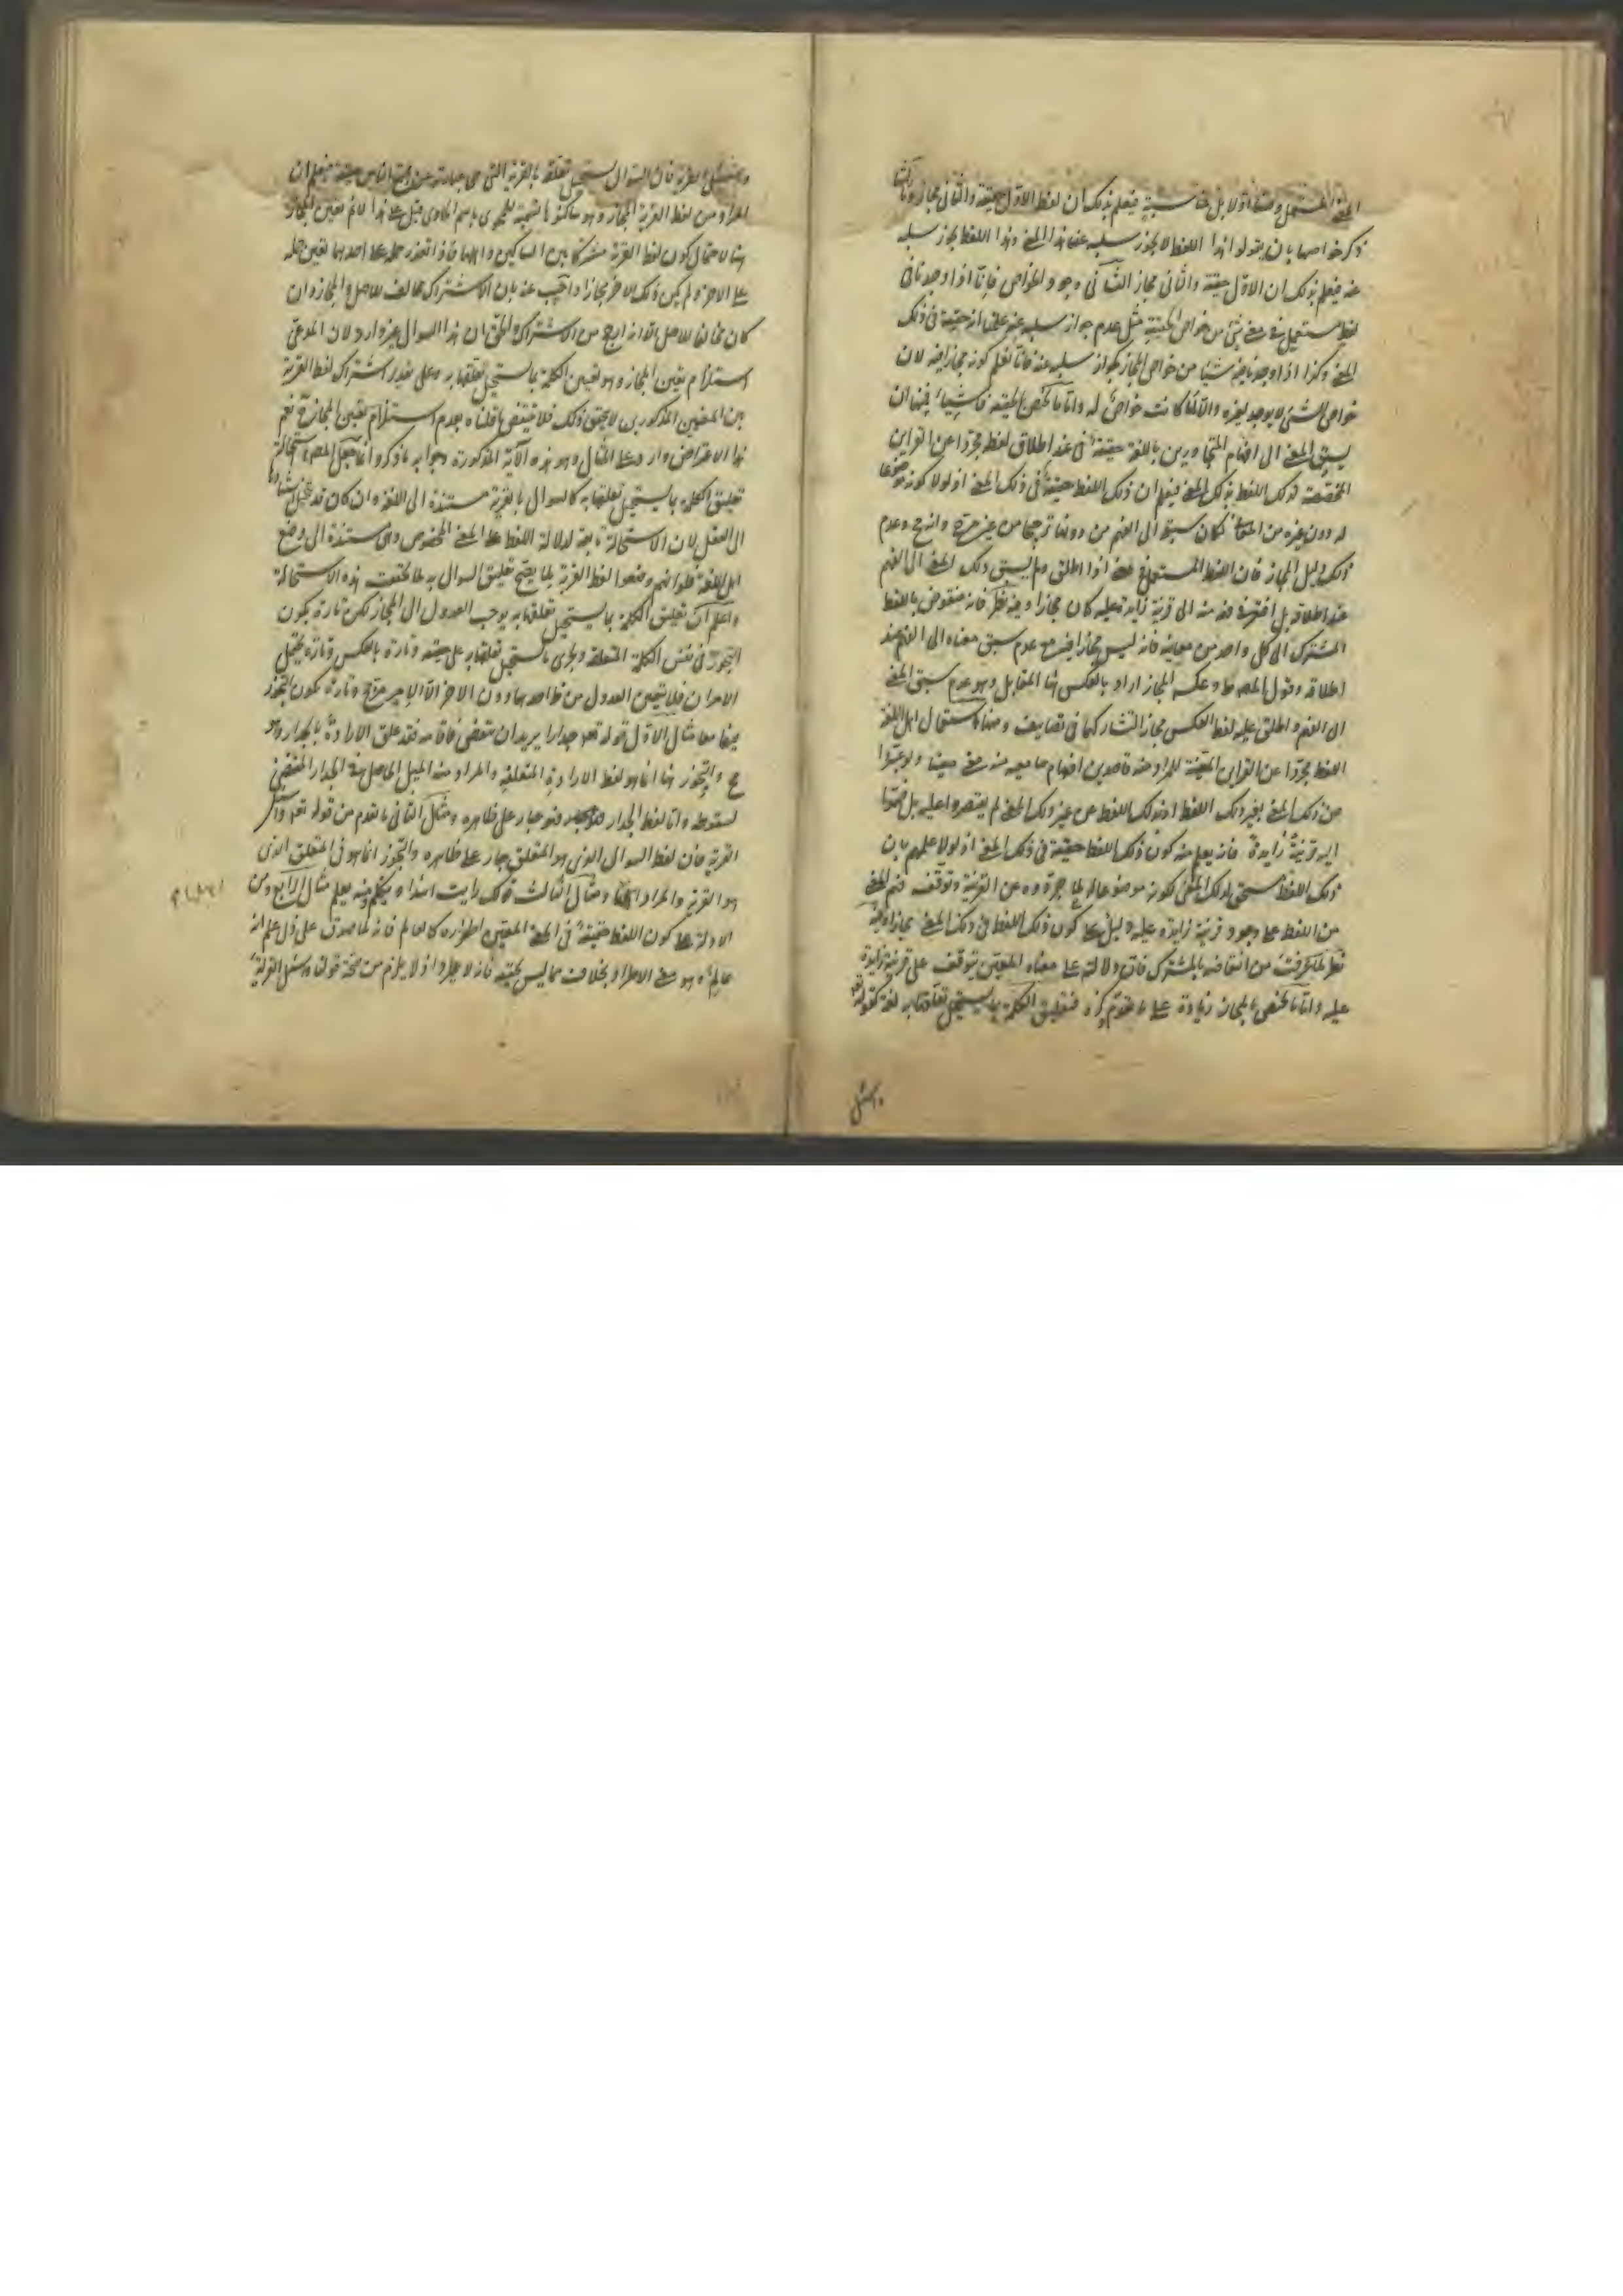 المعنى المستعمل فيه أولا بل مناسبة فيعلم بذلك ان لفظ الاول حقيقة والثاني مجاز وثالثها
ذكر خواصها بان يقولوا هذا اللفظ لا يجوز سلبه عن هذا المعنى وهذا اللفظ يجوز سلبه
عنه فيعلم بذلك ان الاول حقيقة والثاني مجاز الثاني وجود الخواص فانا اذا وجدنا في
لفظ مستعمل في معنى شيئا من خواص الحقيقة مثل عدم جواز سلبه عنه علمنا انه حقيقة في ذلك
المعنى وكذا اذا وجدنا فيه شيئا من خواص المجاز كجواز سلبه عنه فانا نعلم كونه مجازا فيه لان
خواص الشيء لا يوجد لغيره والا لما كانت خواص له واما ما يختص بالحقيقة فاشياء فمنها ان
يسبق المعنى الى افهام المتحاورين باللغة حقيقة في عند اطلاق لفظ مجردا عن القراين
المخصصة لذلك اللفظ بذلك المعنى فيعلم ان ذلك اللفظ حقيقة في ذلك المعنى اذ لولا كونه موضوعا
له دون غيره من المعاني لكان سبقه الى الفهم من دونها ترجيحا من غير مرجح وانه مح وعدم
ذلك دليل المجاز فان اللفظ المستعمل في معنى اذا اطلق ولم يسبق ذلك المعنى الى الفهم
عند اطلاقه بل افتقر في فهمه منه الى قرينة زايدة عليه كان مجازا وفيه نظر فانه منقوض باللفظ
المشترك الى كل واحد من معانيه فانه ليس مجازا فيه مع عدم سبق معناه الى الفهم عند
اطلاقه وقول المصنف وعكسه المجاز اراد بالعكس هنا المقابل وهو عدم سبق المعنى
الى الفهم واطلق عليه لفظ العكس مجازا لتشاركهما في تضايف ومنها استعمال اهل اللغة
اللفظ مجردا عن القراين المعينة للمراد منه قاصدين افهام سامعيه منه معنى معينا ولو عبروا
عن ذلك المعنى بغير ذلك اللفظ او بذلك اللفظ عن غير ذلك المعنى لم يقتصروا عليه بل ضموا
اليه قرينة زايدة فانه يعلم منه كون ذلك اللفظ حقيقة في ذلك المعنى اذ لولا علمهم بان
ذلك اللفظ مستحق لذلك المعنى لكونه موضوعا له لما جردوه عن القرينة وتوقف فهم المعنى
من اللفظ على وجود قرينة زايدة عليه دليل على كون ذلك اللفظ في ذلك المعنى مجازا وفيه
نظر لما عرفت من انتقاضه بالمشترك فان دلالته على معناه المعين يتوقف على قرينة زايدة
عليه واما ما يختص بالمجاز زيادة على ما تقدم ذكره فتعليق الكلمة بما يستحيل تعلقها به لغة كقوله تعالى
واسئل
واسئل القرية فان السؤال يستحيل تعلقه بالقرية التي هي عبارة عن مجتمع الناس حقيقة فيعلم ان
المراد من لفظ القرية المجاز وهو ساكنوها تسمية للمحوى باسم الحاوى قيل على هذا لانم تعين المجاز
هنا لاحتمال كون لفظ القرية مشتركا بين الساكنين والبناء فاذا تعذر حمله على احدهما تعين حمله
على الاخر ولم يكن ذلك الاخر مجازا واجيب عنه بان الاشتراك مخالف للاصل والمجاز وان
كان مخالفا للاصل الا انه ارجح من الاشتراك والحق ان هذا السؤال غير وارد لان المدعى
استلزام تعين المجاز وهو تعليق الكلمة بما يستحيل تعلقها به وعلى تقدير اشتراك لفظ القرية
بين المعنيين المذكورين لا يتحقق ذلك فلا ينتقض ما قلناه بعدم استلزام تعين المجاز ح نعم
هذا الاعتراض وارد على المثال وهو هذه الآية المذكورة وجوابه ما ذكر وانما جعل المصنف استحالة
تعليق الكلمة بما يستحيل تعلقها به كالسؤال بالقرية مستندة الى اللغة وان كان قد يتخيل اسنادها
الى العقل لان الاستحالة تابعة لدلالة اللفظ على المعنى المخصوص وهي مستندة الى وضع
اهل اللغة فلو انهم وضعوا لفظ القرية لما يصح تعليق السؤال به لما تحققت هذه الاستحالة
واعلم ان تعليق الكلمة بما يستحيل تعلقها به يوجب العدول الى المجاز لكن تارة يكون
التجوز في نفس الكلمة المتعلقة ويجرى ما يستحيل تعلقها به على حقيقته وتارة بالعكس وتارة يحتمل
الامران فلا يتعين العدول من ظاهر احدهما دون الاخر الا لامر مرجح وتارة يكون التجوز
فيهما معا مثال الاول قوله تعه جدارا يريد ان ينقض فاقامه فقد علق الارادة بالجدار وهو
مح والتجوز هنا انما هو لفظ الارادة المتعلقة والمراد منه الميل الحاصل في الجدار المقتضى
لسقوطه واما لفظ الجدار فهو جار على ظاهره ومثال الثاني ما تقدم من قوله تعه واسئل
القرية فان لفظ السؤال الذي هو المتعلق جار على ظاهره والتجوز انما هو في المتعلق الذي
هو القرية والمراد اهلها ومثال الثالث قولك رايت اسدا يتكلم ومنه يعلم مثال الرابع ومن
الادلة على كون اللفظ حقيقة في المعنى المعين اطراده كالعالم فانه لما صدق على ذى علم انه
عالم وهو معنى الاطراد بخلاف ما ليس بحقيقة فانه لا يطرد اذ لا يلزم من صحة قولنا واسئل القرية